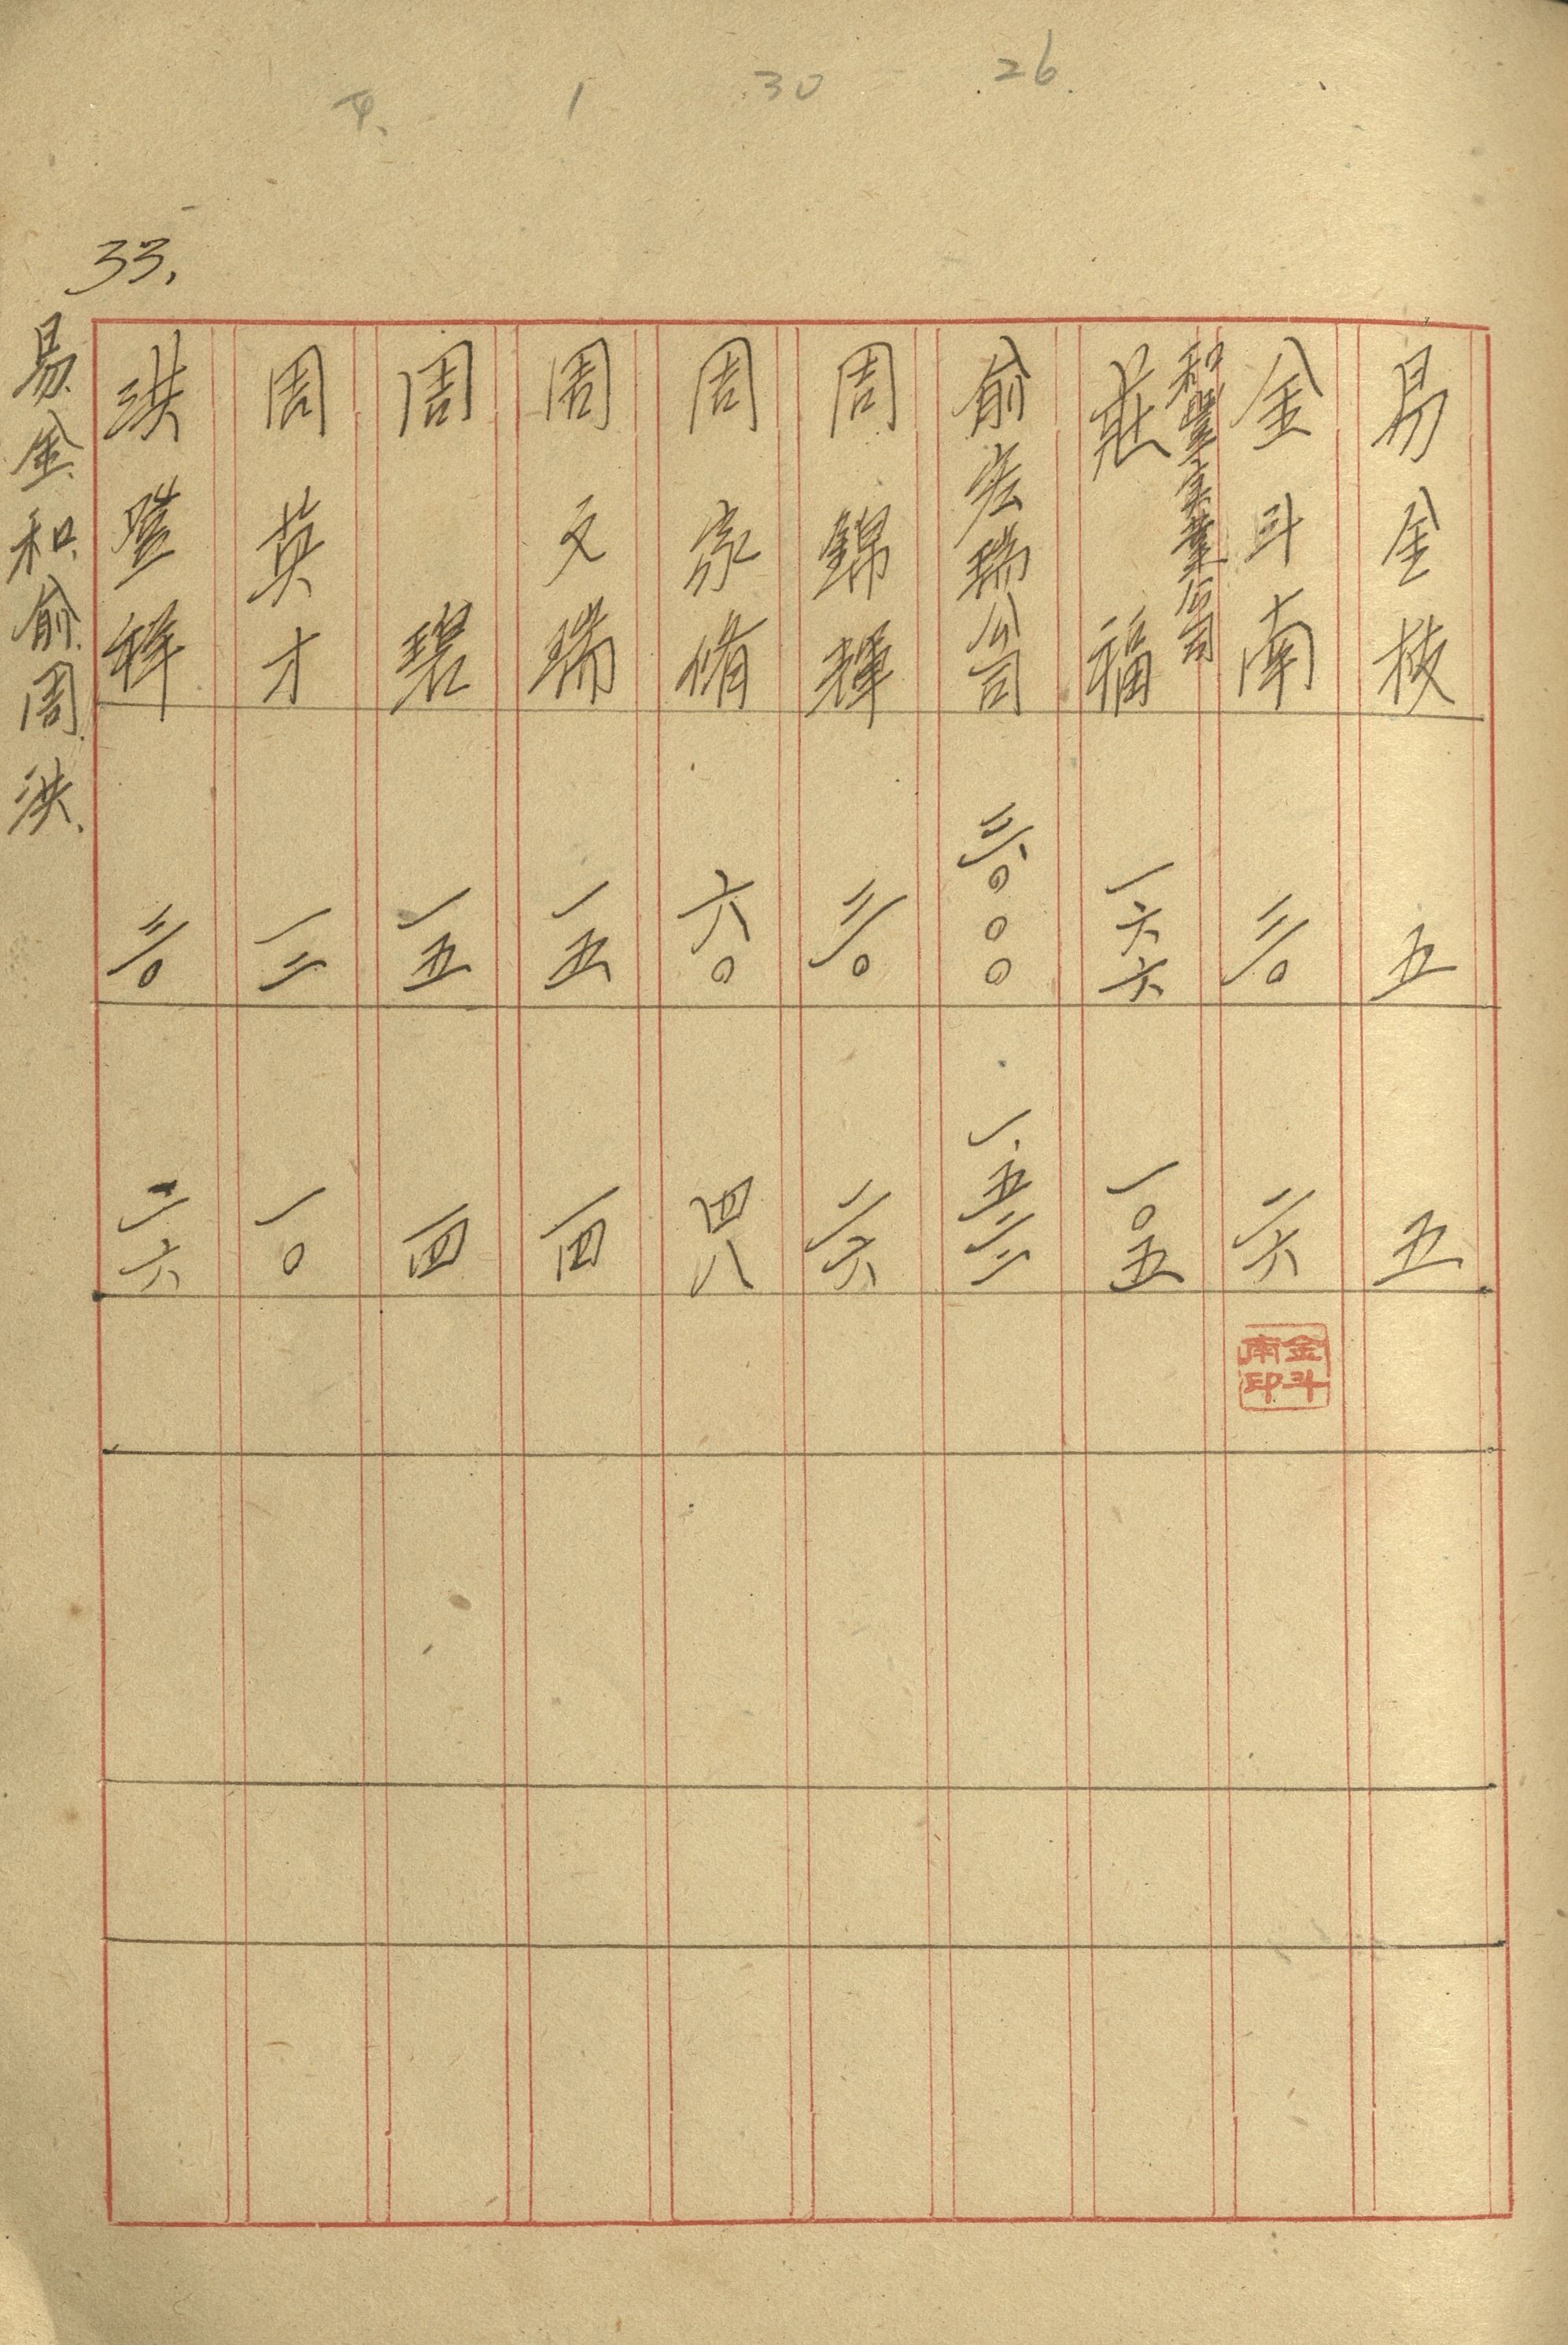 26
30
1
易金枝 五 五
金斗南 三〇 二六
金斗南印
和豐實業公司
莊福 一六六 一〇五
俞宏瑞公司 三、〇〇〇 一、五三二
周錦輝 三〇 二六
周家脩 六〇 四八
周文瑞 一五 一四
周碧 一五 一四
周英才 一二 一〇
洪登祥 三〇 二六
33.
易.金.和.俞.周.洪.